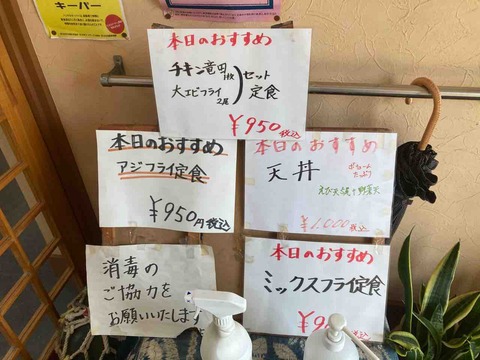 キーパー
本日のおすすめ
チキン竜田1枚
大エビフライ2尾
セット
定食
¥950税込
本日のおすすめ
アジフライ定食
¥950円税込
本日のおすすめ
天丼
ボリュームたっぷり
¥1,000税込
消毒の
ご協力を
お願いいたします
本日のおすすめ
ミックスフライ定食
税込